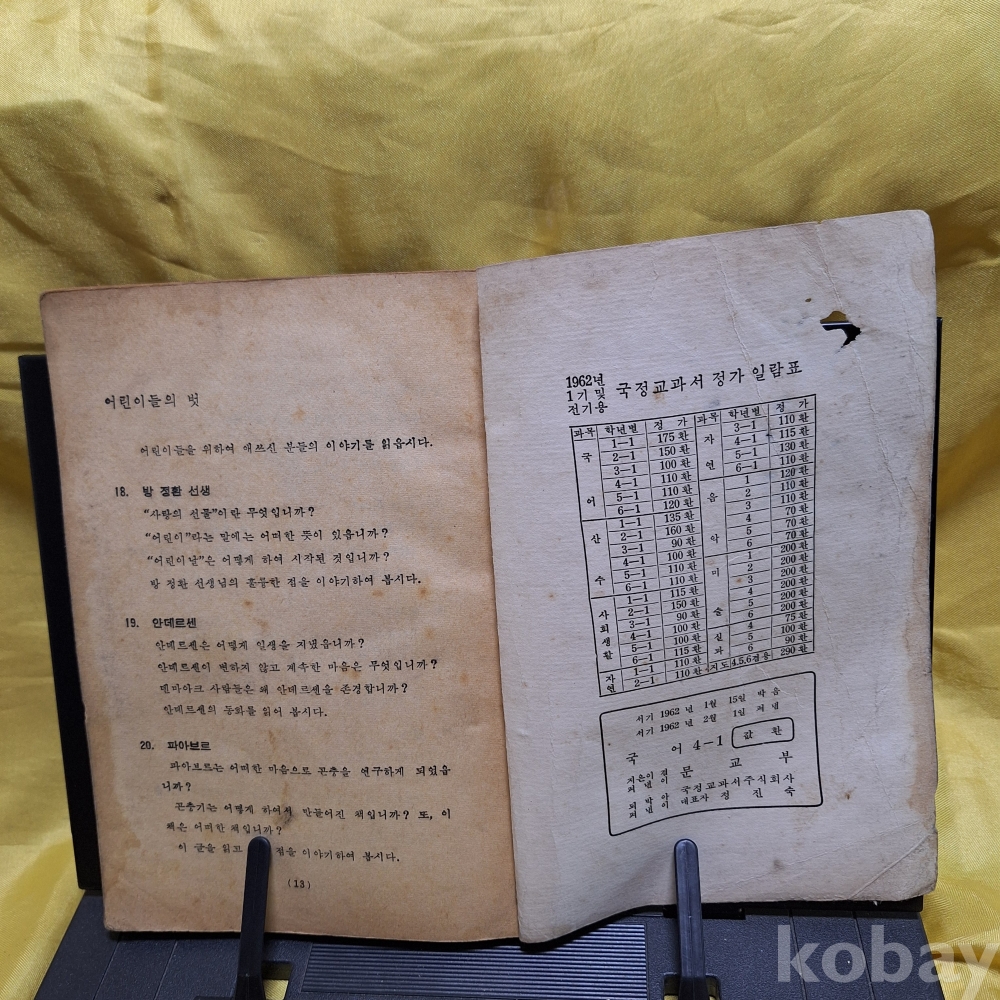 어린이들의 벗
어린이들을 위하여 애쓰신 분들의 이야기를 읽읍시다.
18. 방 정환 선생
“사랑의 선물”이란 무엇입니까?
“어린이”라는 말에는 어떠한 뜻이 있읍니까?
“어린이날”은 어떻게 하여 시작된 것입니까?
방 정환 선생님의 훌륭한 점을 이야기하여 봅시다.
19. 안데르센
안데르센은 어떻게 일생을 지냈읍니까?
안데르센이 변하지 않고 계속한 마음은 무엇입니까?
덴마아크 사람들은 왜 안데르센을 존경합니까?
안데르센의 동화를 읽어 봅시다.
20. 파아브르
파아브르는 어떠한 마음으로 곤충을 연구하게 되었읍
니까?
곤충기는 어떻게 하여서 만들어진 책입니까? 또, 이
책은 어떠한 책입니까?
이 글을 읽고 점을 이야기하여 봅시다.
(13)
1962년
1기 및
전기용
국정교과서 정가 일람표
과목 학년별 정 가 과목 학년별 정 가
국어 1—1 175환
2—1 150환
3—1 100환
4—1 110환
5—1 110환
6—1 120환
산수 1—1 135환
2—1 160환
3—1 90환
4—1 100환
5—1 110환
6—1 110환
사회생활 1—1 115환
2—1 150환
3—1 90환
4—1 100환
5—1 100환
6—1 115환
자연 1—1 110환
2—1 110환
자연 3—1 110환
4—1 115환
5—1 130환
6—1 110환
음악 1 120환
2 110환
3 110환
4 70환
5 70환
6 70환
미술 1 200환
2 200환
3 200환
4 200환
5 200환
6 200환
실과 4 75환
5 100환
6 90환
지도 4.5.6겸용 290환
서기 1962 년 1월 15일 박음
서기 1962 년 2월 1일 펴냄
국 어 4—1 값 환
지은이 겸
펴낸이 문 교 부
국정교과서주식회사
대표자 정 진 숙
kobay